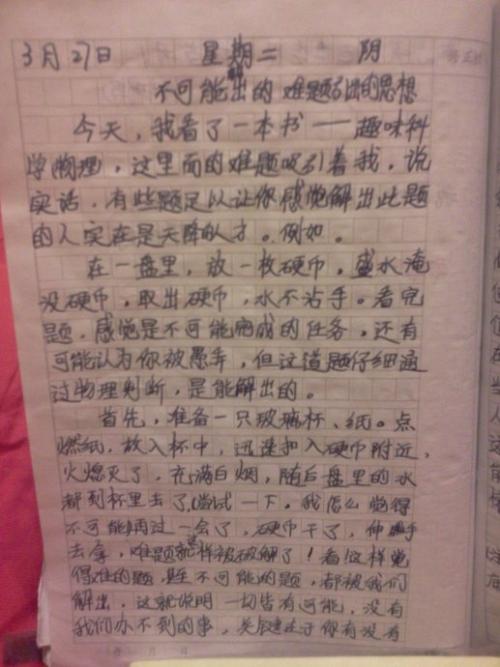 3月27日 星期二 阴
不可能解出的难题引出的思想
今天，我看了一本书——趣味科
学物理，这里面的难题吸引着我，说
实话，有些题足以让你感觉解出此题
的人实在是天降的才。例如。
在一盘里，放一枚硬币，盛水淹
没硬币，取出硬币，水不沾手。看完
题，感觉是不可能完成的任务，还有
可能认为你被愚弄，但这道题仔细通
过物理判断，是能解出的。
首先，准备一只玻璃杯、纸。点
燃纸，放入杯中，迅速扣入硬币附近，
火熄灭了，充满白烟，随后盘里的水
都到杯里去了，尝试一下。我怎么觉得
不可能再过一会了，硬币干了，伸手
去拿，难题就这样被破解了！看这样觉
得难的题，甚至不可能的题，都被我们
解出，这就说明一切皆有可能，没有
我们办不到的事，关键在于你有没有